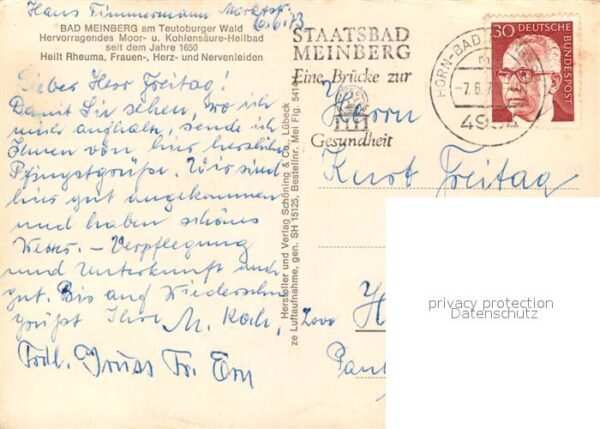 Hans Timmermann Marktstr.
6.6.73
BAD MEINBERG am Teutoburger Wald
Hervorragendes Moor- u. Kohlensäure-Heilbad
seit dem Jahre 1650
Heilt Rheuma, Frauen-, Herz- und Nervenleiden
Lieber Herr Freitag!
Damit Sie sehen, wo ich
mich aufhalte, sende ich
Ihnen von hier herzliche
Pfingstgrüße. Wir sind
hier gut angekommen
und haben schönes
Wetter. – Verpflegung
und Unterkunft auch
gut. Bis auf Wiedersehn
grüßt Ihre M. Koch,
Frdl. Gruss Fr.
Hersteller und Verlag Schöning & Co., Lübeck
ze Luftaufnahme, gen. SH 15125, Bestellnr. Mei Fig. 5414
STAATSBAD
MEINBERG
Eine Brücke zur
Gesundheit
HORN-BAD
-7.6.7
4934
30 DEUTSCHE BUNDESPOST
Herrn
Kurt Freitag
2000 H
privacy protection
Datenschutz